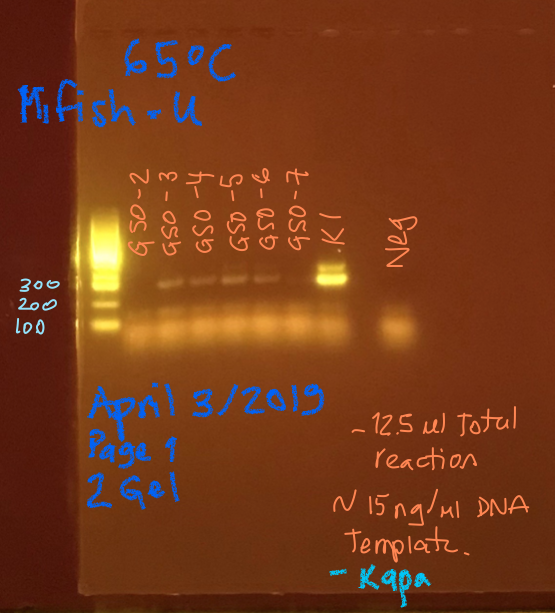 65°C
Mifish-U
GSO-2
GSO-3
GSO-4
GSO-5
GSO-6
GSO-7
K1
Neg
300
200
100
April 3/2019
Page 1
2 Gel
- 12.5 ul Total
reaction
~ 15ng/ul DNA
Template.
- Kapa